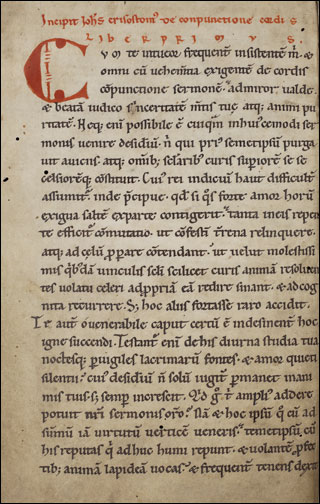 Incipit Johis crisostomi de conpunctione cordis
LIBER PRIMVS
Cum te intueor frequent insistente m &
omni cu vehementia exigente de cordis
conpunctione sermone admiror valde
& beata iudico sinceritate mtis tue atq; animi pu
ritate. Neq; eni possibile e cuiqm huiuscemodi ser
monis venire desidiu n qui pri semetipsu purga
uit a uiciis atq; omnib; sclarib; curis superiore se se
celsioreq; constituit. Cui rei indiciu haut difficult
assumit inde precipue qd si qs forte amor horu
exigua salte exparte contigerit tanta in eis repen
te efficit comutatio ut confesti trena relinquere
atq; ad celu ppare contendant. ut velut molestissi
mis qbda vinculis scli scilicet curis anima resoluen
tes uolatu celeri ad ppria ea redire sinant & ad cog
nita recurrere. S; hoc aliis fortasse raro accidit.
Te aut o uenerabile caput certu e indesinent hoc
igne succendi. Testant eni de his diurna studia tua
noctesq; puigiles lacrimaru fontes & amor quieti
silentii cui desidiu n solu iugit pmanet in ani
mis tuis s; semp increscit. Qd g t amplius addere
potuit nri sermonis oro sla & hoc ipsu q cu ad
sumu ia uirtutu uertice ueneris temetipsu cu
his reputas q adhuc humi repunt & uolante pfec
tib; anima lapidea uocas & frequent tenens dext